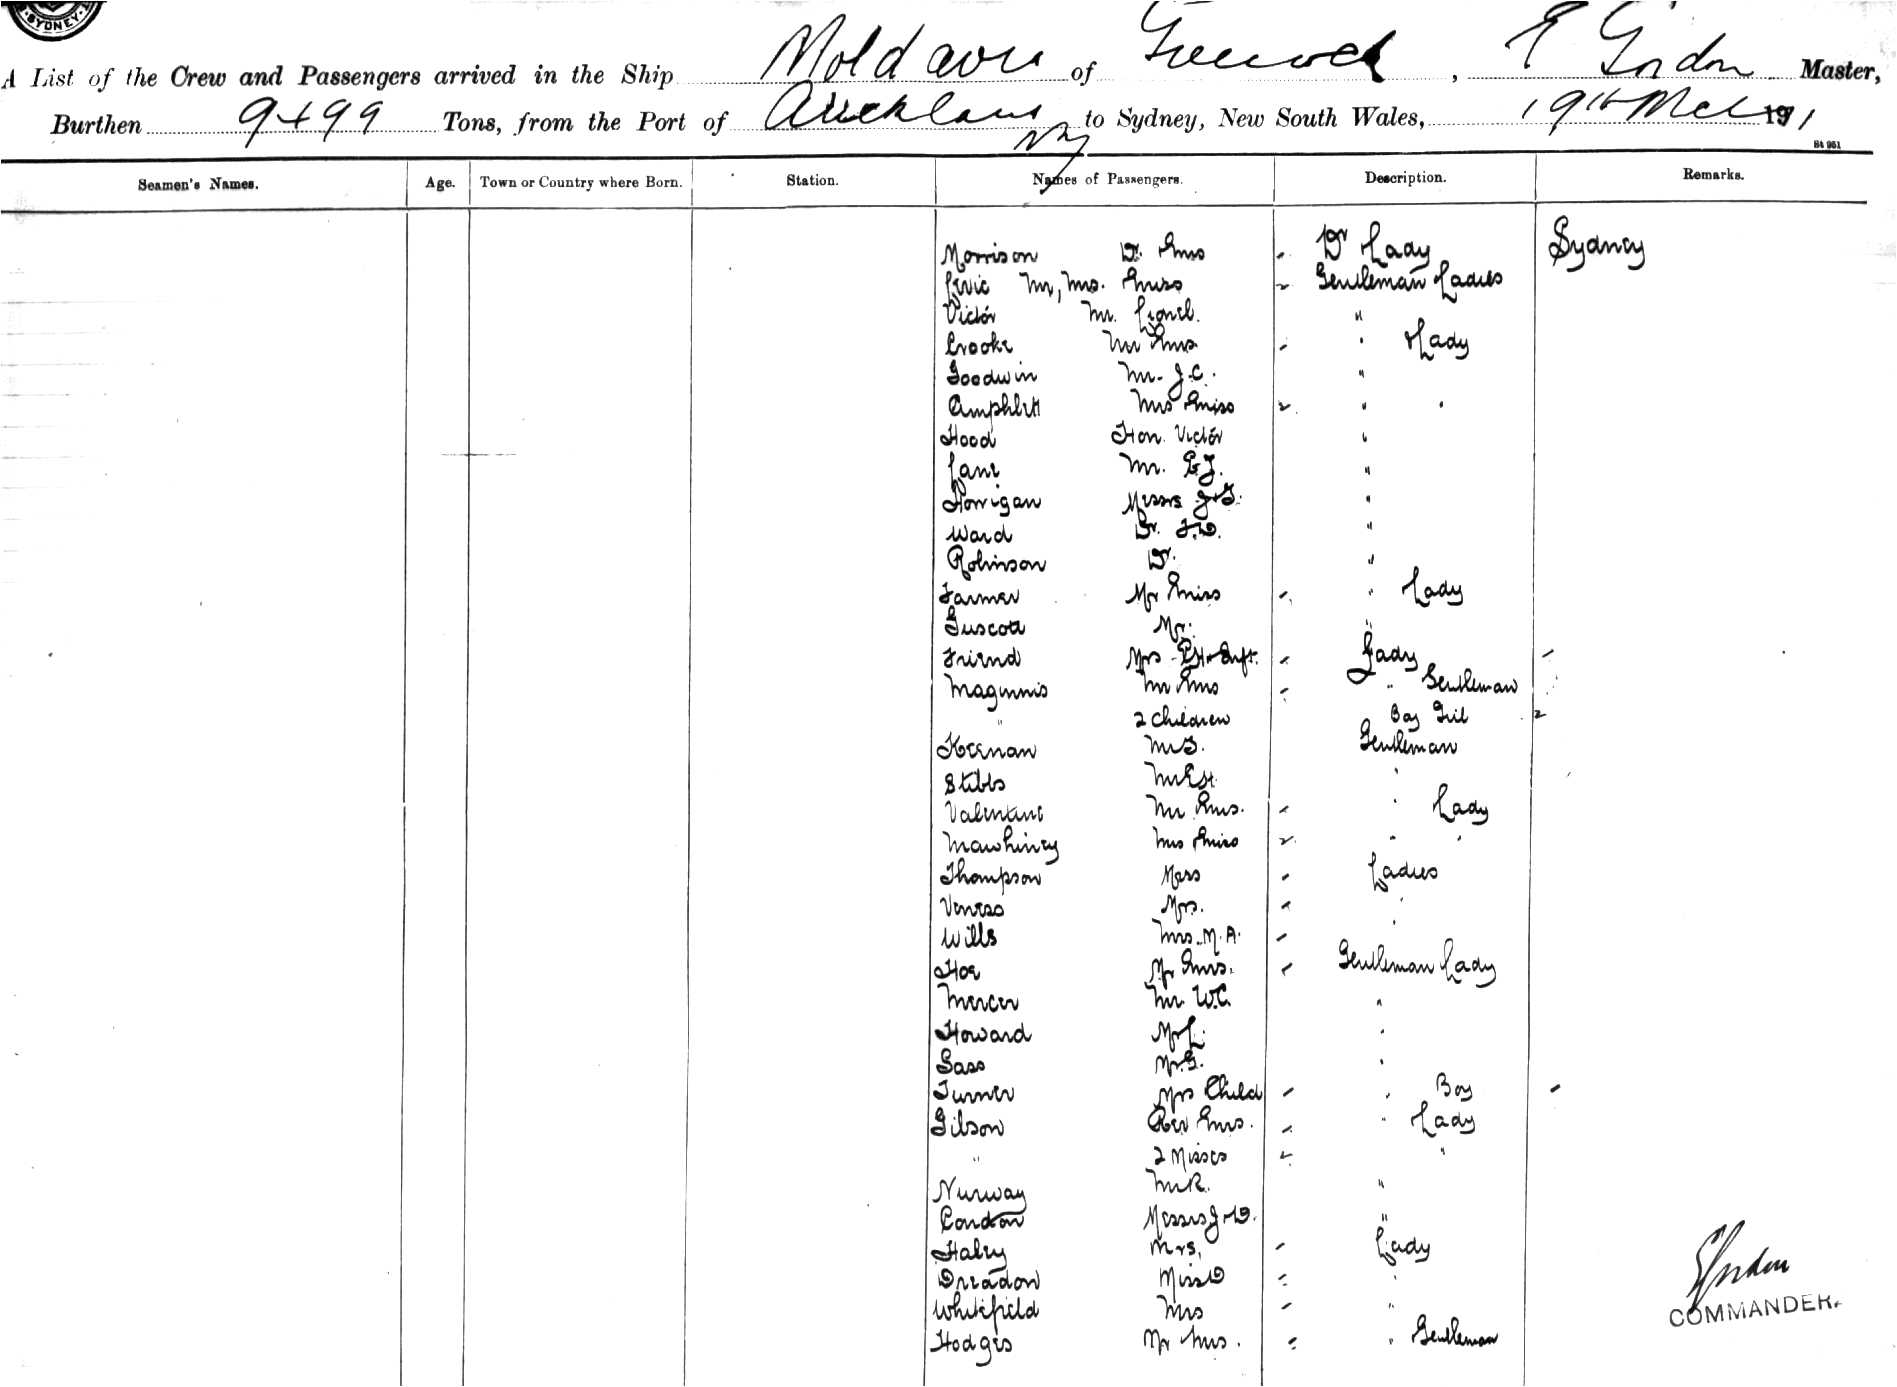 SYDNEY
A List of the Crew and Passengers arrived in the Ship Moldavia of Greenock, E Gordon Master,
Burthen 9499 Tons, from the Port of Auckland NZ to Sydney, New South Wales, 19th Mch 1911
84 951
Seamen's Names. Age. Town or Country where Born. Station. Names of Passengers. Description. Remarks.
Morrison Dr. & Mrs Dr Lady Sydney
Mr, Mrs. & Miss 2 Gentleman Ladies
Victor Mr. Lionel. "
Crooke Mr & Mrs " Lady
Goodwin Mr. J.C. "
Amphlett Mrs & Miss 2 " "
Hood Hon. Victor "
Lane Mr. E.J. "
Horrigan Messrs J & G. "
Ward Dr. F.D. "
Robinson Dr. "
Farmer Mr & Miss " Lady
Guscott Mr. "
Friend Mrs Lady
Maginnis Mr & Mrs " Gentleman
" 2 Children Boy Girl 2
Keenan Mr G. Gentleman
Stibbs Mr E.H. "
Valentine Mr & Mrs. " Lady
Mawhiney Mrs & Miss 2 " "
Thompson Ladies
Veness Mrs. "
Wills Mrs. M.A. "
Hoe Mr & Mrs. Gentleman Lady
Mercer Mr W.C. "
Howard Mr L. "
Sass Mr. G. "
Turner Mrs Child " Boy
Gibson Rev & Mrs. " Lady
" 2 Misses 2 "
Nurway Mr R. "
Condon Messrs J & D. "
Haley Mrs, Lady
Dreadon Miss D "
Whitefield Mrs "
Hodges Mr & Mrs. " Gentleman
E Gordon
COMMANDER.